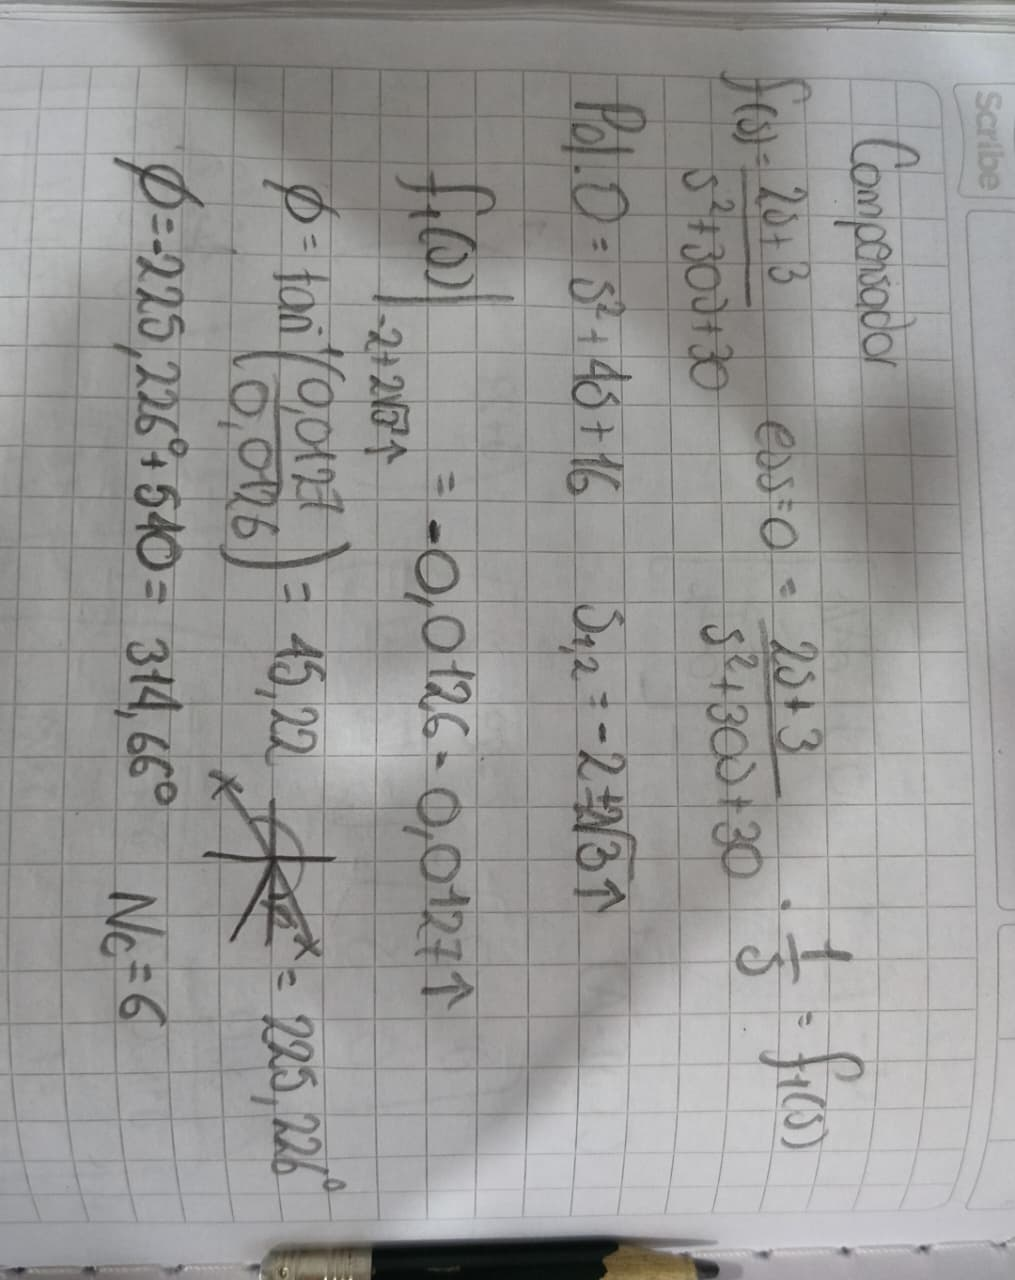 Scribe
Compensador
f(s) = 2s+3 / s²+30s+30    ess=0 = 2s+3 / s²+30s+30 · 1/s = f₁(s)
Pol. D = s²+4s+16    s₁,₂ = -2±2√3↑
f₁(s)|-2+2√3↑ = -0,0126 - 0,0127↑
φ = tan⁻¹(0,0127 / 0,0126) = 45,22 = 225,226°
φ = -225,226° + 540 = 314,66°    Nc = 6